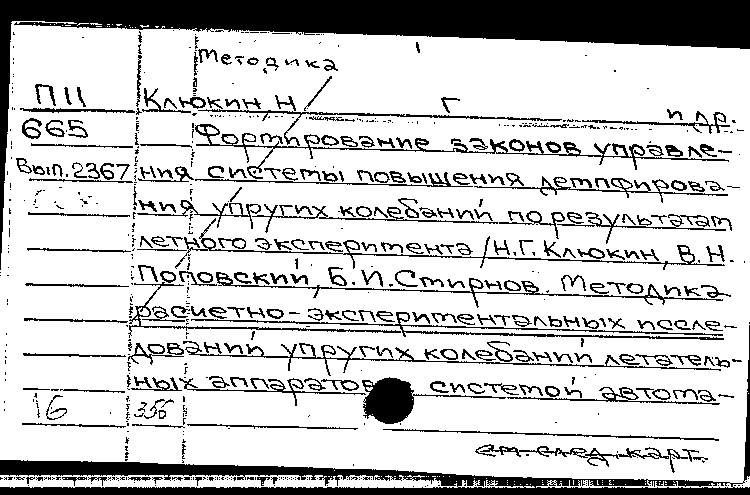 Методика
П11 Клюкин, Н Г и др.
665 Формирование законов управле-
Вып. 2367 ния системы повышения демпфирова-
ния упругих колебаний по результатам
летного эксперимента / Н.Г. Клюкин, В.Н.
Поповский, Б.И. Смирнов. Методика
расчетно-экспериментальных иссле-
дований упругих колебаний летатель-
ных аппаратов системой автома-
16 356
см. след. карт.